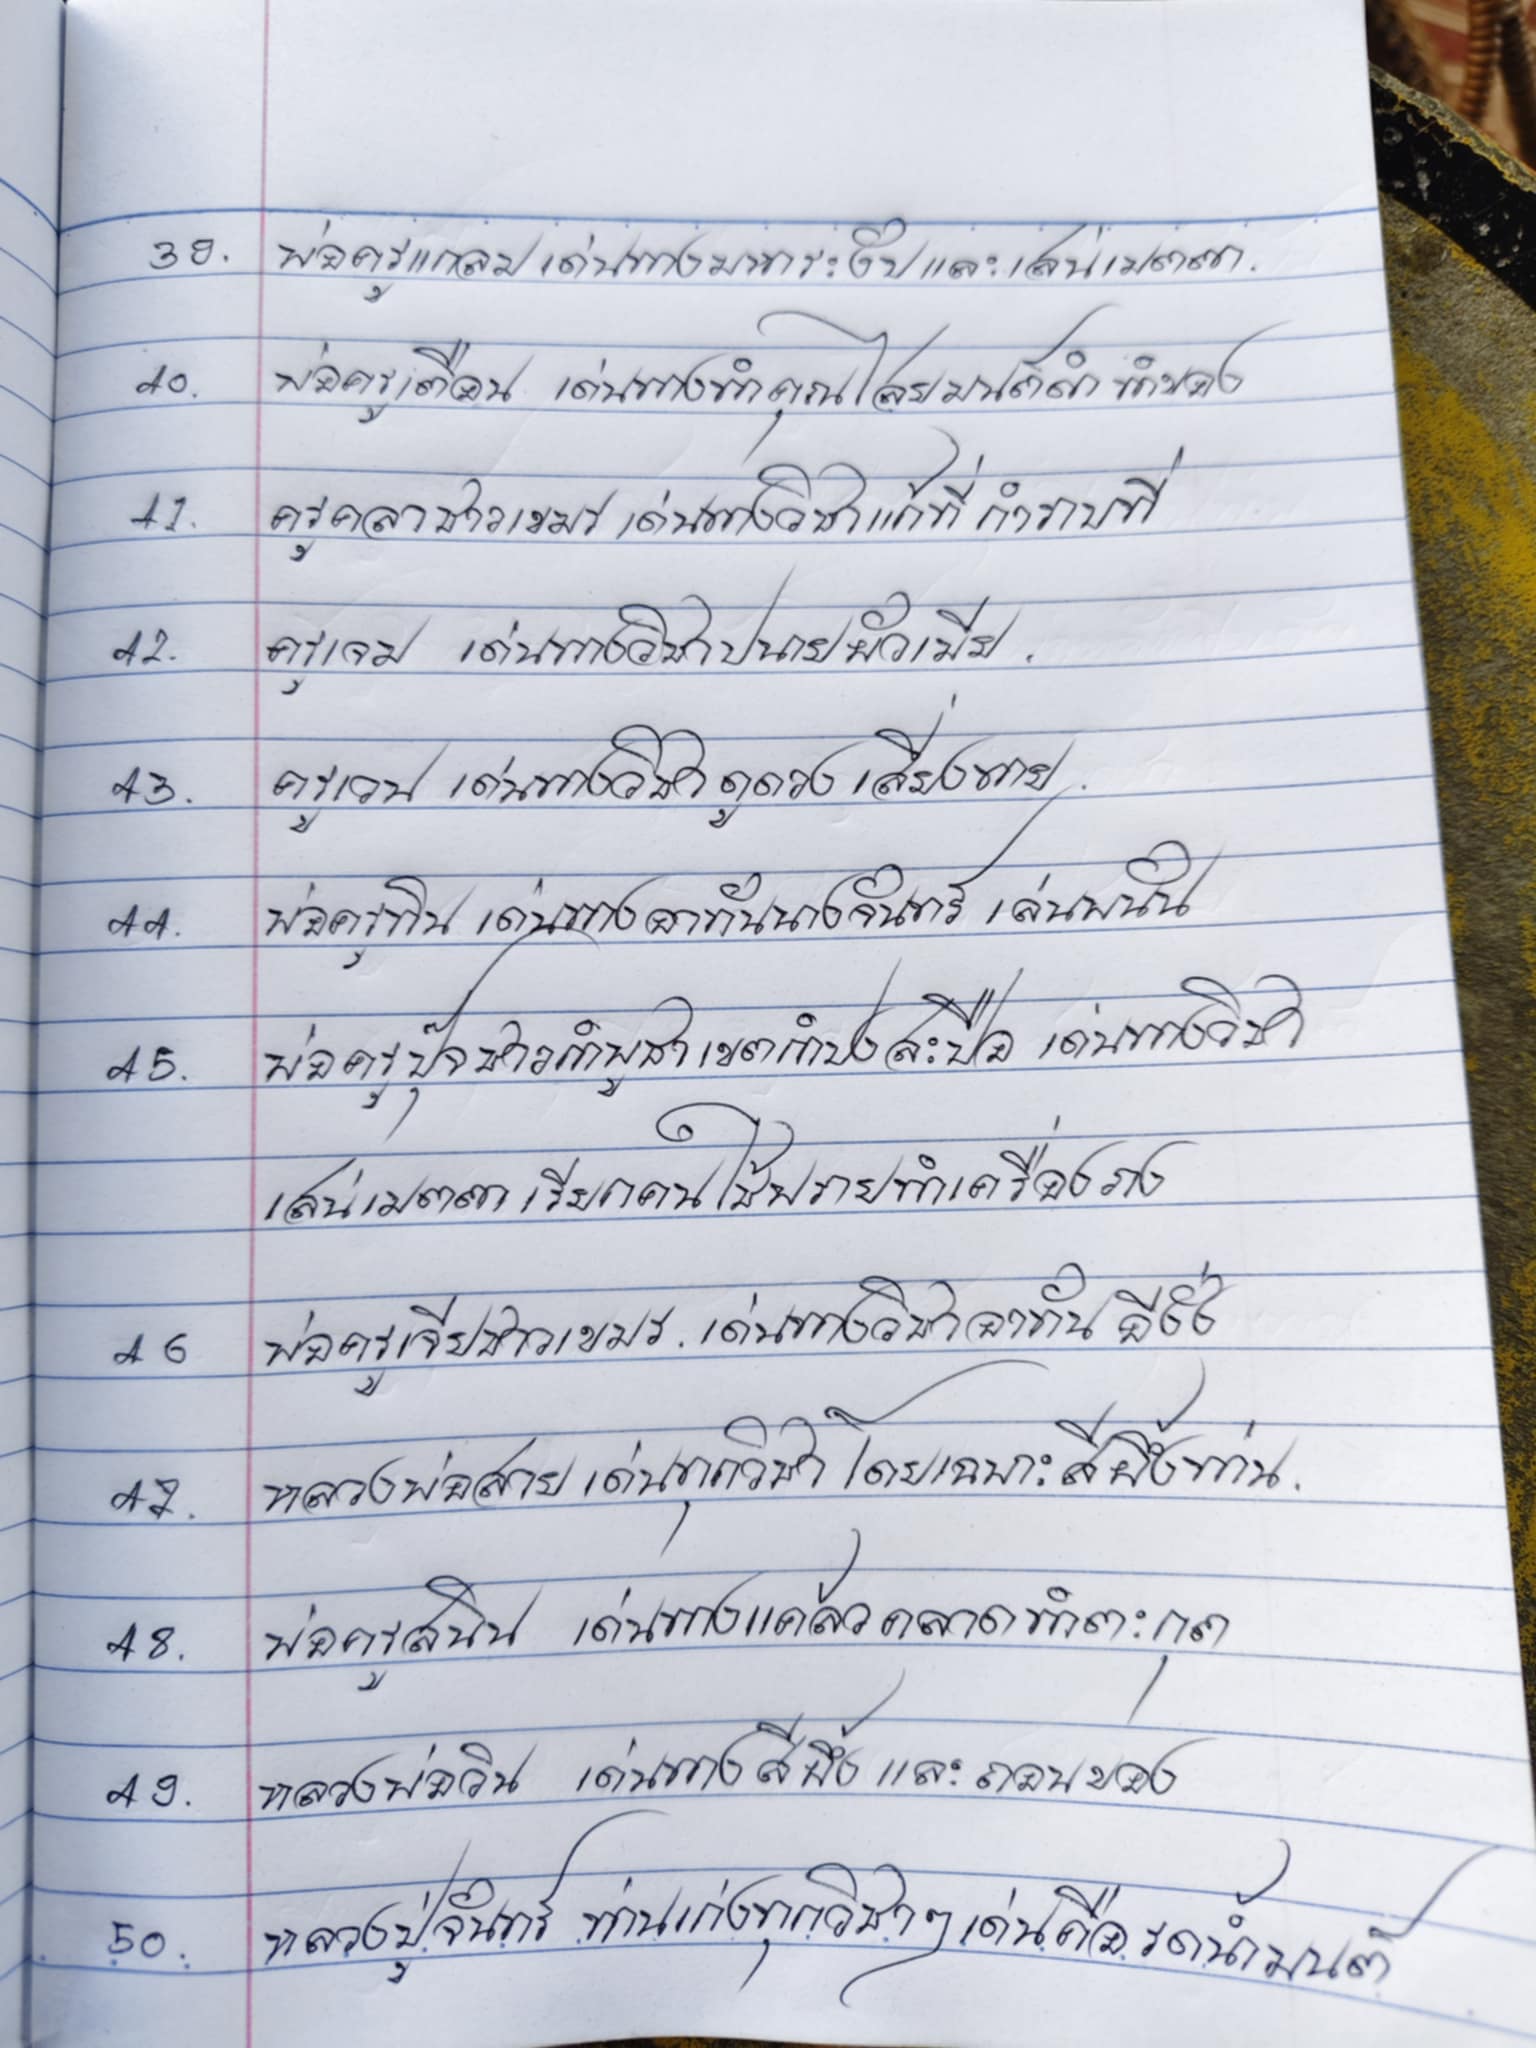 39. พ่อครูแกลบ เด่นทางมหาระงับและเสน่เมตตา.
40. พ่อครูเตือน เด่นทางทำคุณไสยมนต์ดำ ทำของ
41. ครูคลาชาวเขมร เด่นทางวิชาแก้ที่ กำราบที่
42. ครูเจม เด่นทางวิชาปนายผัวเมีย.
43. ครูเวน เด่นทางวิชาดูดวง เสี่ยงทาย.
44. พ่อครูทิน เด่นทางอาทันนางจันทร์ เล่นพนัน
45. พ่อครูปุ๊จชาวกำพูชาเขตกำปงสะปือ เด่นทางวิชา
เสน่เมตตา เรียกคนใช้พรายทำเครื่องราง
46 พ่อครูเจียชาวเขมร. เด่นทางวิชาอาทัน อีงั่ง
47. หลวงพ่อสาย เด่นทุกวิชา โดยเฉพาะสีผึ้งท่าน.
48. พ่อครูสนิน เด่นทางแคล้วคลาดทำตะกุต
49. หลวงพ่อวิน เด่นทางสีผึ้ง และถอนของ
50. หลวงปู่จันทร์ ท่านเก่งทุกวิชาๆ เด่นคือรดน้ำมนต์